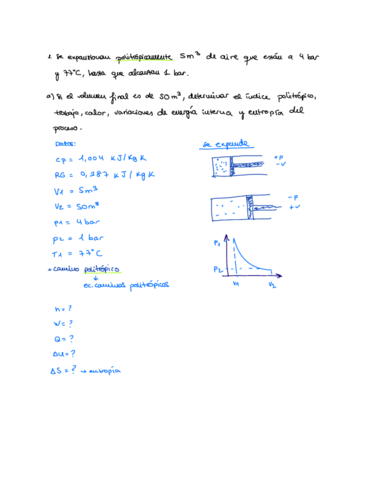 1. Se expansionan politrópicamente 5m³ de aire que están a 4 bar
y 77°C, hasta que alcanzan 1 bar.
a) Si el volumen final es de 50m³, determinar el índice politrópico,
trabajo, calor, variaciones de energía interna y entropía del
proceso.
Datos:
cp = 1,004 kJ/kg K
RG = 0,287 kJ/kg K
V1 = 5m³
V2 = 50m³
p1 = 4 bar
p2 = 1 bar
T1 = 77°C
* camino politrópico
↓
ec. caminos politrópicos
n = ?
W = ?
Q = ?
ΔU = ?
ΔS = ? → entropía
se expande
+P
-V
-P
+V
P1
P2
V1
V2